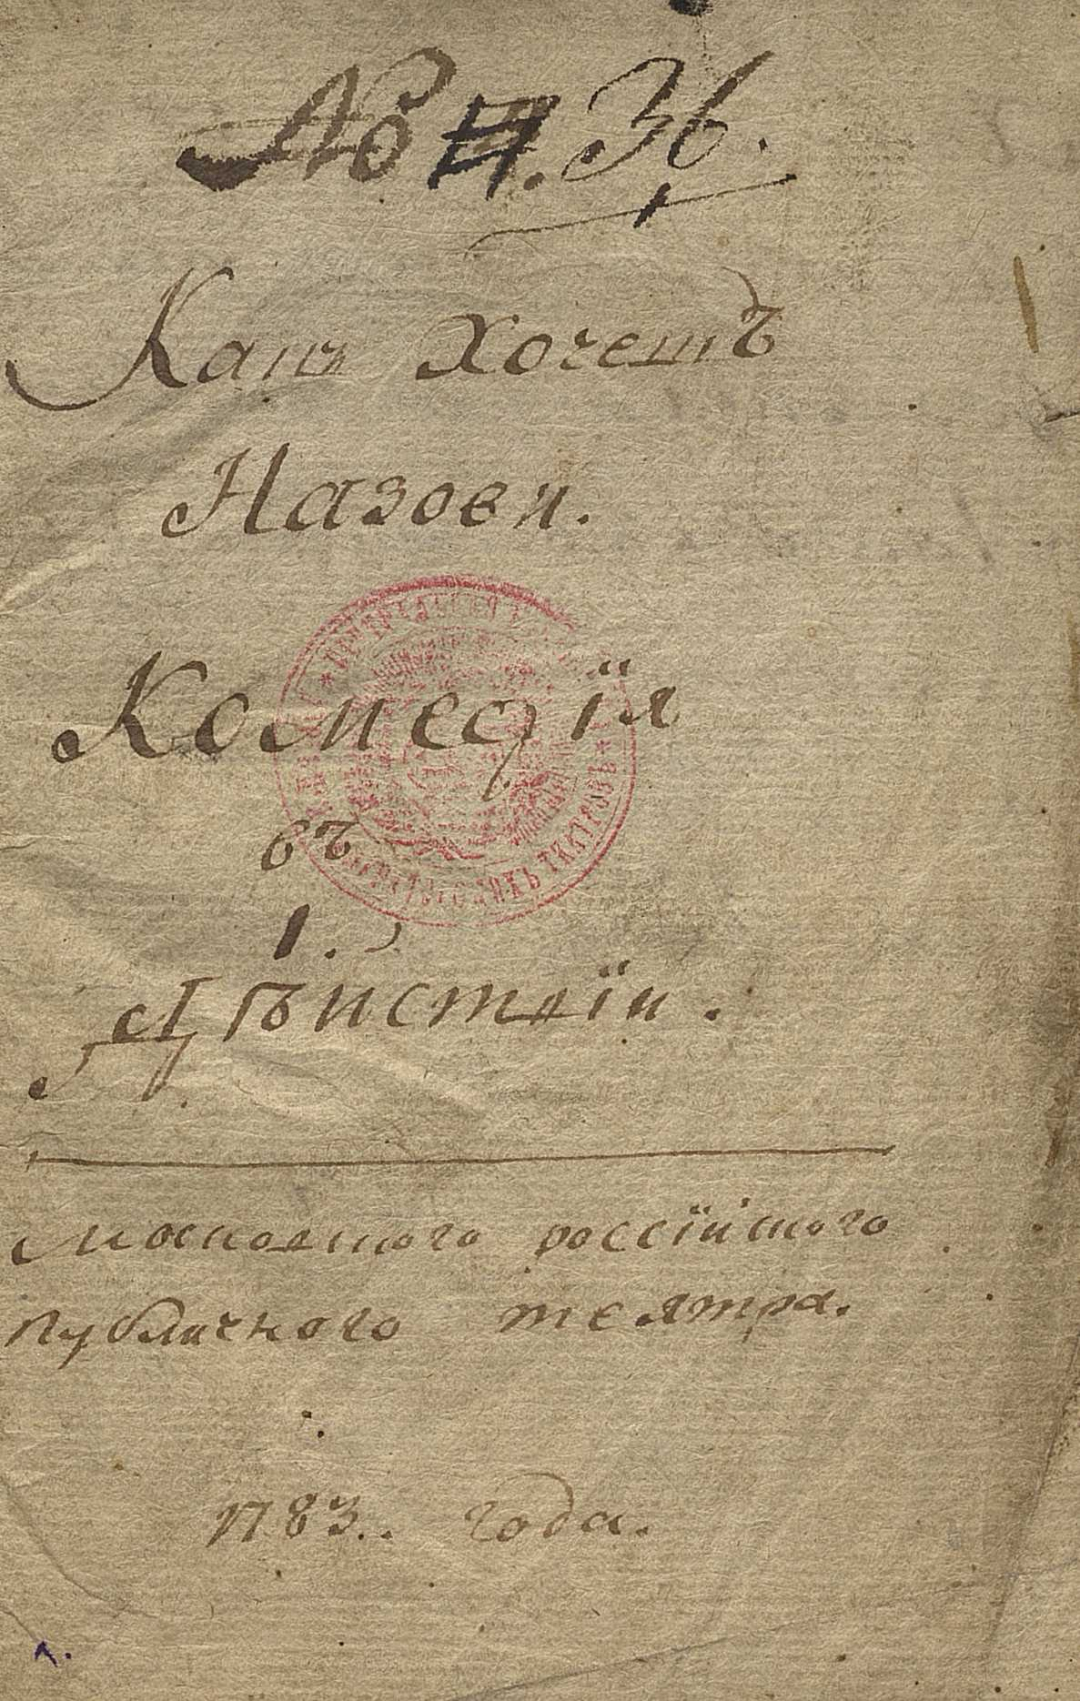 № 36.
Какъ хочешъ
Назови.
Комедїя
въ
1.
Дѣиствїи.
Московского россїиского
публичного театра.
1783.. года.